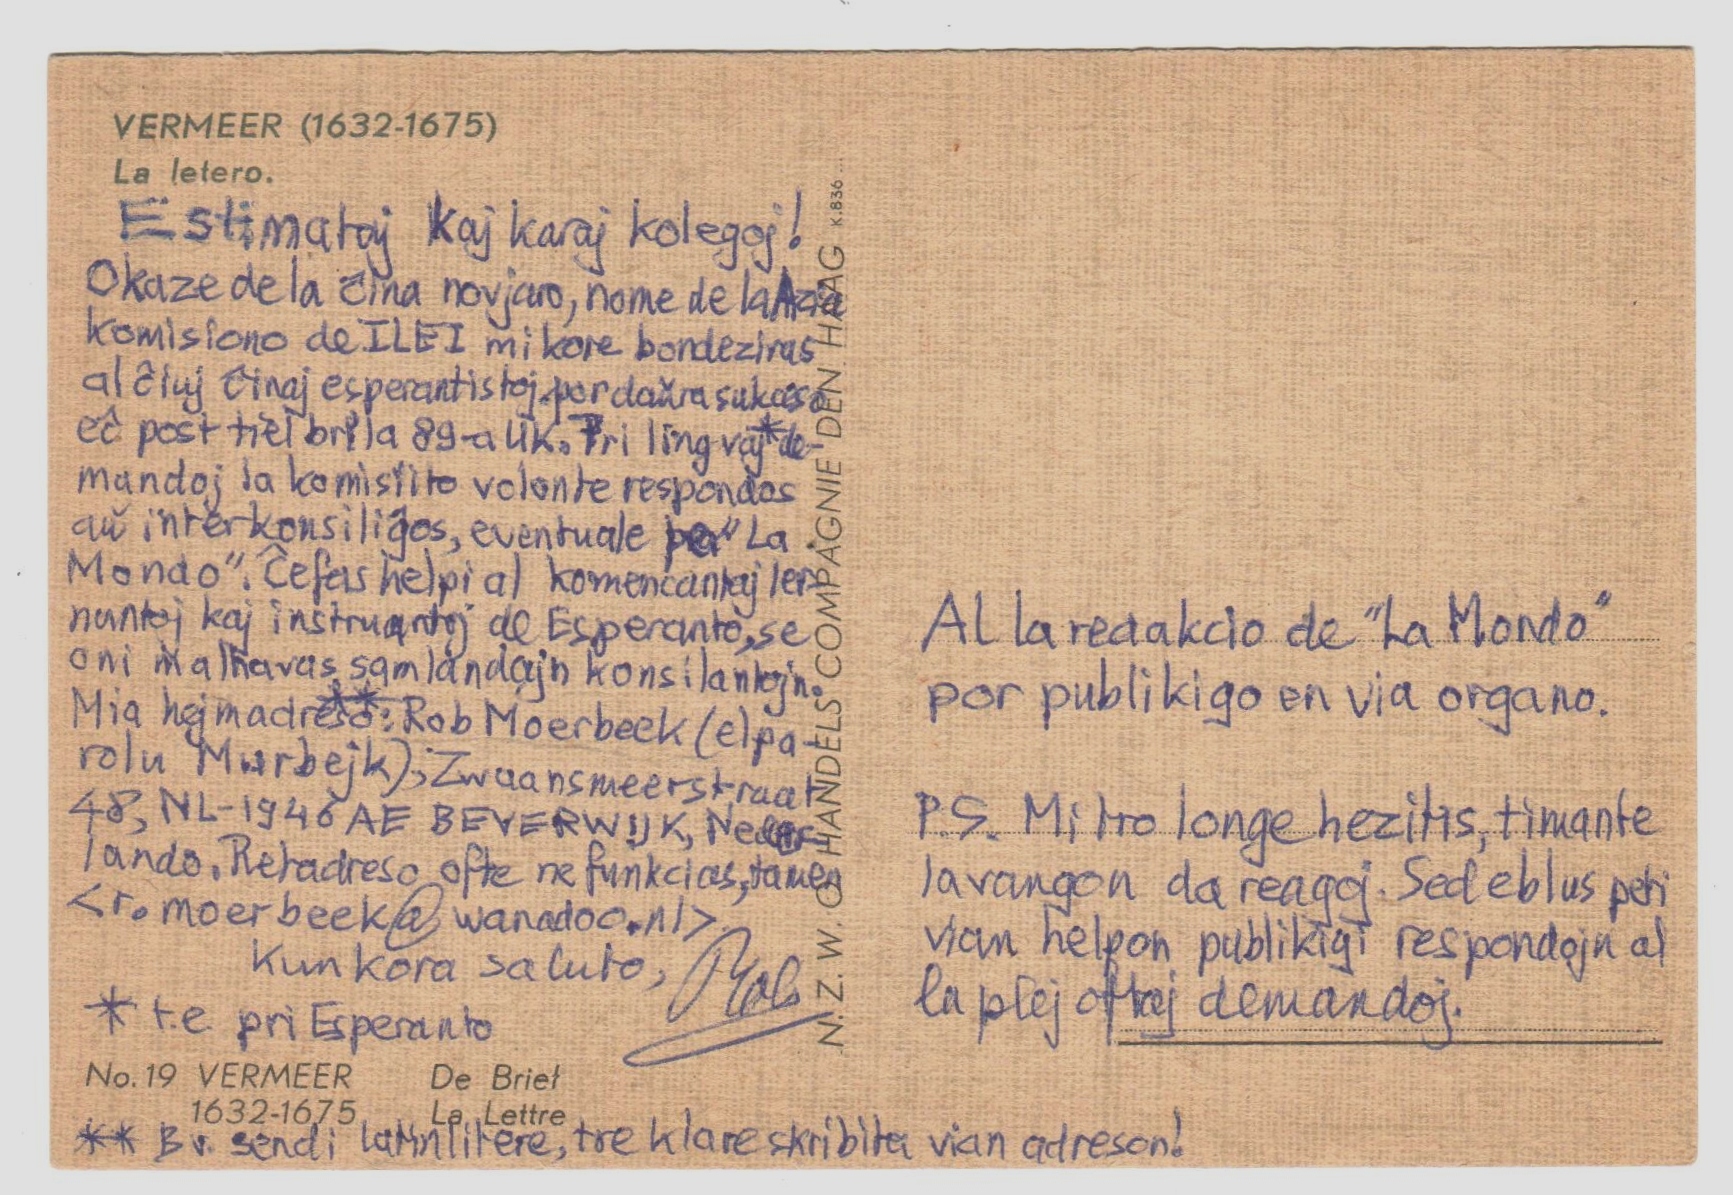 VERMEER (1632-1675)
La letero.
Estimataj kaj karaj kolegoj!
Okaze de la ĉina novjaro, nome de la Azia
komisiono de ILEI mi kore bondeziras
al ĉiuj ĉinaj esperantistoj por daŭra sukceso
eĉ post tiel brila 89-a UK. Pri lingvaj* de-
mandoj la komisiito volonte respondos
aŭ interkonsiliĝos, eventuale per "La
Mondo". Ĉefas helpi al komencantaj ler-
nantoj kaj instruantoj de Esperanto, se
oni malhavas samlandajn konsilantojn.
Mia hejmadreso**: Rob Moerbeek (elpa-
rolu Murbejk), Zwaansmeerstraat
48, NL-1946 AE BEVERWIJK, Neder-
lando. Retadreso ofte ne funkcias, tamen
<r.moerbeek@wanadoo.nl>.
Kun kora saluto, Rob
* t.e. pri Esperanto
No. 19 VERMEER De Brief
1632-1675 La Lettre
** Bv. sendi latinlitere, tre klare skribita vian adreson!
N.Z.W.O HANDELS COMPAGNIE DEN HAAG K.836
Al la redakcio de "La Mondo"
por publikigo en via organo.
P.S. Mi tro longe hezitis, timante
lavangon da reagoj. Sed eblus peti
vian helpon publikigi respondojn al
la plej oftaj demandoj.